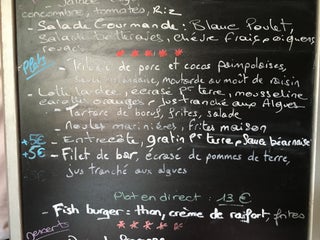 concombre, tomates, Riz
- Salade Gourmande : Blanc Poulet,
Salade, betteraves, chèvre frais, oignons
rouges
Plats
- Ribs de porc et cocos paimpolaises,
sauce, moutarde au moût de raisin
- écrasé P^s terre, mousseline
carottes oranges, jus tranché aux Algues
- Tartare de boeuf, frites, salade
- Moules marinières, frites maison
+5€ - Entrecôte, gratin P^s terre, sauce béarnaise
+5€ - Filet de bar, écrasé de pommes de terre,
jus tranché aux algues
Plat en direct : 13 €
- Fish burger : thon, crème de raifort, frites
Desserts